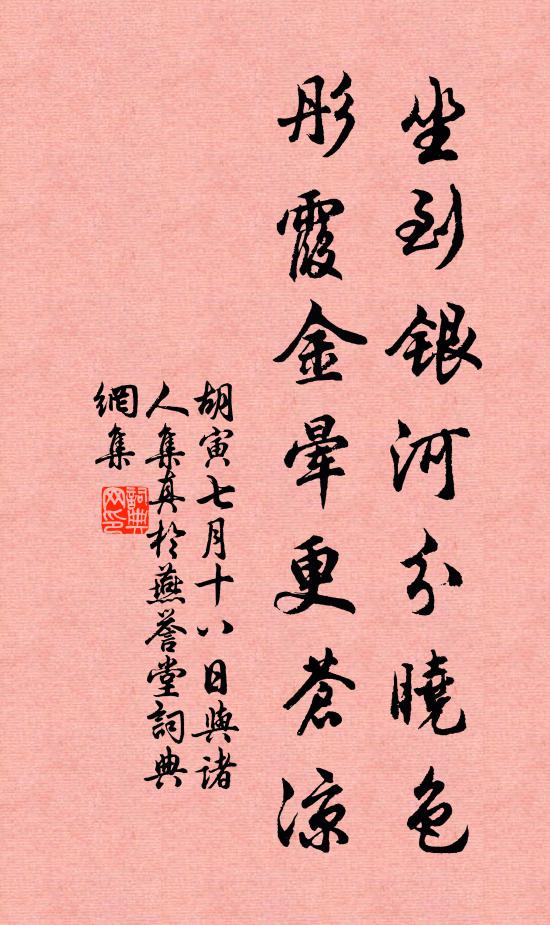 坐到銀河分曉色
彤霞金暈更蒼涼
胡寅七月十八日與諸
人集真於燕譽堂詞典
網集
詞典
网印